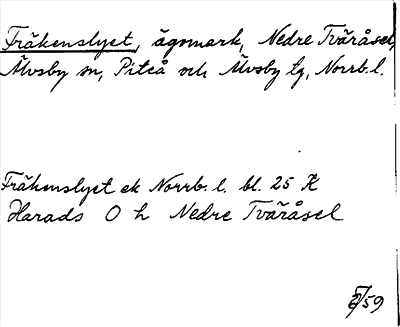 Fräkenslyet, ägomark, Nedre Tväråsel,
Älvsby sn, Piteå och Älvsby tg, Norrb. l.
Fräkenslyet ek Norrb. l. bl. 25 K
Harads O h Nedre Tväråsel
/59